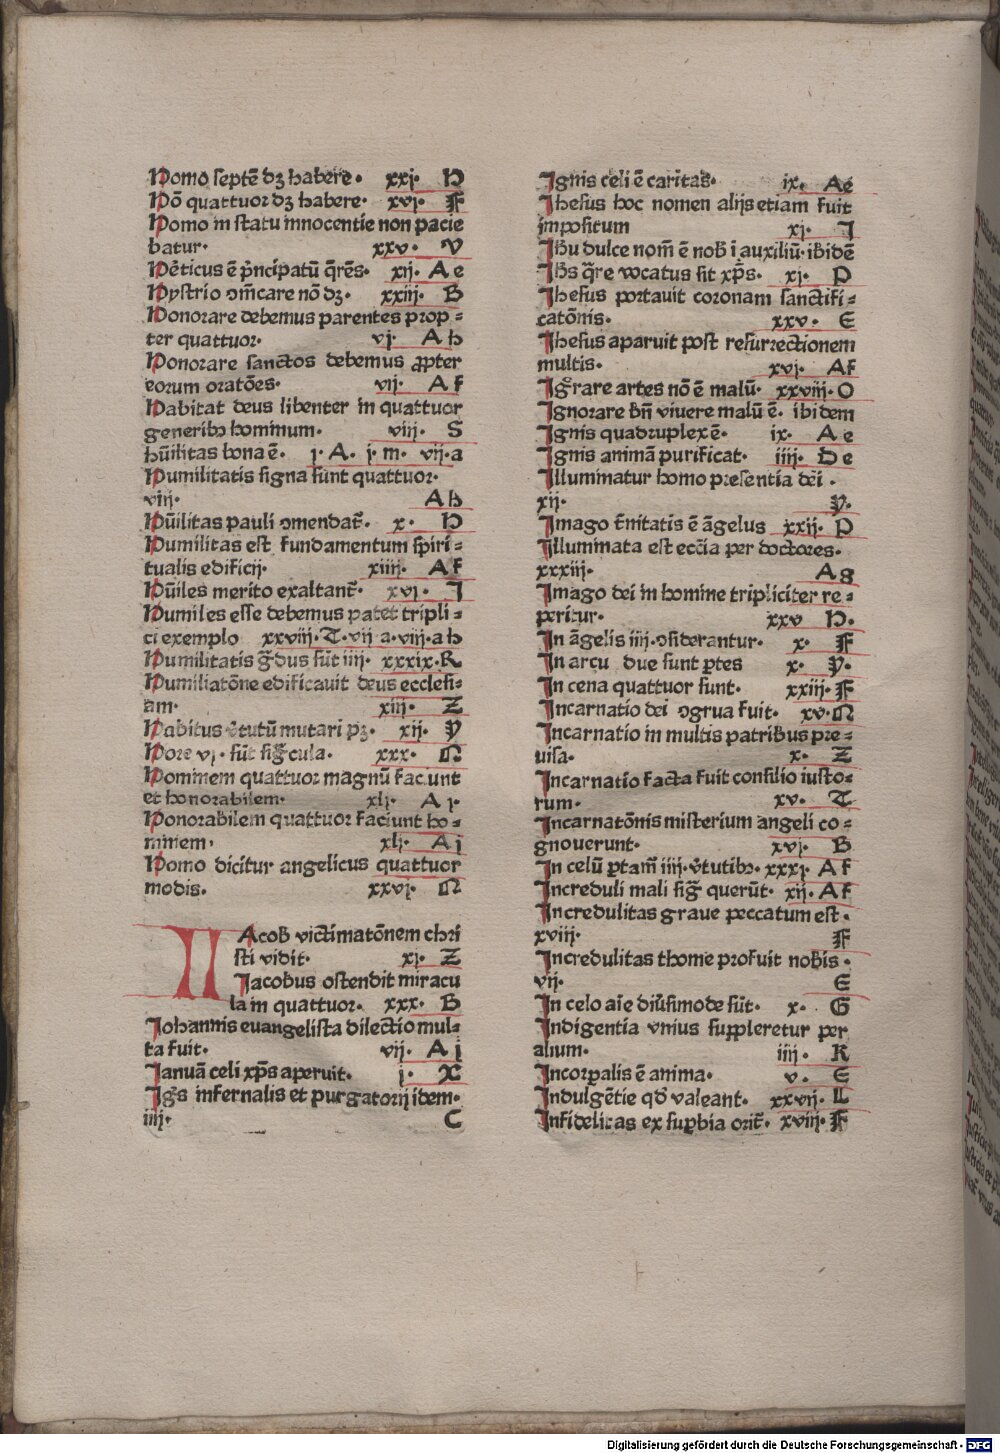 Homo septē dꝫ habere· xxj· H
Hō quattuor dꝫ habere· xvj· F
Homo in statu innocentie non pacie
batur· xxv· V
Hēticus ē pͥncipatū q̄rēs· xij· A e
Hystrio ↄm̄care nō dꝫ· xxiij· B
Honorare debemus parentes prop⸗
ter quattuor· vj· A h
Honorare sanctos debemus ꝓpter
eorum oratōes· vij· A f
Habitat deus libenter in quattuor
generibꝫ hominum· viij· S
hūilitas bona ē· j· A· j· m· vij·a
Humilitatis signa sunt quattuor·
viij· A h
Hūilitas pauli ↄmendat̄· x· H
Humilitas est fundamentum spiri⸗
tualis edificij· xiiij· A f
Hūiles merito exaltant̄· xvj· J
Humiles esse debemus patet tripli⸗
ci exemplo xxviij·T·vij a·viij·a h
Humilitatis g̃dus sūt iiij· xxxix·R
Humiliatōne edificauit deus ecclesi⸗
am· xiij· Z
Habitus v̓tutū mutari pꝫ· xij· Y
Hore vj· sūt sig̃cula· xxx· M
Hominem quattuor magnū faciunt
et honorabilem· xlj· A j·
Honorabilem quattuor faciunt ho⸗
minem· xlj· A j
Homo dicitur angelicus quattuor
modis· xxvj· M
Acob victimatōnem chri
sti vidit· xj· Z
Jacobus ostendit miracu
la in quattuor· xxx· B
Johannis euangelista dilectio mul⸗
ta fuit· vij· A j
Januā celi xp̄s aperuit· j· X
Jgs̄ infernalis et purgatorij idem·
iiij· C
Jgnis celi ē caritas· ix· Ae
Jhesus hoc nomen alijs etiam fuit
impositum xj· J
Jhū dulce nom̄ ē nob̄ ī auxiliū· ibidē
Jhs̄ q̄re vocatus sit xp̄s· xj· P
Jhesus portauit coronam sanctifi⸗
catōnis· xxv· E
Jhesus aparuit post resurrectionem
multis· xvj· Af
Jgr̄are artes nō ē malū· xxviij·O
Jgnorare bn̄ viuere malū ē· ibidem
Jgnis quadruplex ē· ix· A e
Jgnis animā purificat· iiij· D e
Jlluminatur homo presentia dei·
xij· Y·
Jmago t̓nitatis ē āgelus xxij· P
Jlluminata est ecc̄ia per doctores·
xxxiij· A g
Jmago dei in homine tripliciter re⸗
peritur· xxv H·
Jn āgelis iiij·ↄsiderantur· x· F
Jn arcu due sunt ꝑtes x· Y·
Jn cena quattuor sunt· xxiij· F
Jncarnatio dei ↄgrua fuit· xv· M
Jncarnatio in multis patribus pre⸗
uisa· x· Z
Jncarnatio facta fuit consilio iusto⸗
rum· xv· T
Jncarnatōnis misterium angeli co⸗
gnouerunt· xvj· B
Jn celū ꝑtam̄ iiij·v̓tutibꝫ· xxxj· A f
Jncreduli mali sig̃ querūt· xij· A f
Jncredulitas graue peccatum est·
xviij· F
Jncredulitas thome profuit nobis·
vij· E
Jn celo aīe diu̓simode sūt· x· G
Jndigentia vnius suppleretur per
alium· iiij· K
Jncorꝑalis ē anima· v· E
Jndulgētie qd̓ valeant· xxvij· L
Jnfidelitas ex suꝑbia orit̄· xviij· F
Digitalisierung gefördert durch die Deutsche Forschungsgemeinschaft - DFG